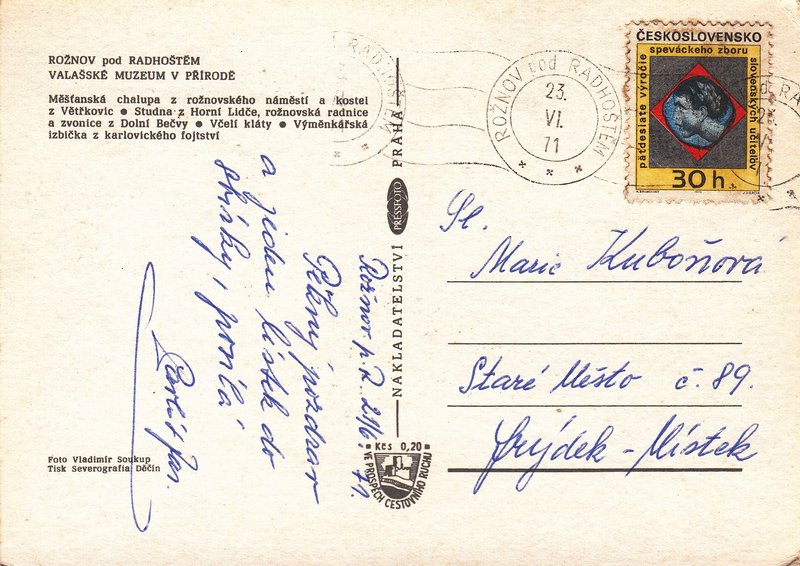 ROŽNOV pod RADHOŠTĚM
VALAŠSKÉ MUZEUM V PŘÍRODĚ
Měšťanská chalupa z rožnovského náměstí a kostel
z Větřkovic ● Studna z Horní Lidče, rožnovská radnice
a zvonice z Dolní Bečvy ● Včelí kláty ● Výměnkářská
izbička z karlovického fojtství
Rožnov p. R. 21/6. 71.
Pěkný pozdrav
a jeden lístek do
sbírky, posílá
Jar.
Foto Vladimír Soukup
Tisk Severografia Děčín
NAKLADATELSTVÍ PRESSFOTO PRAHA
Kčs 0,20
VE PROSPĚCH CESTOVNÍHO RUCHU
ROŽNOV pod RADHOŠTĚM
23.
VI.
71
ČESKOSLOVENSKO
päťdesiate výročie speváckeho zboru slovenských učiteľov
30 h
Sl.
Marie Kuboňová
Staré Město č. 89.
Frýdek-Místek